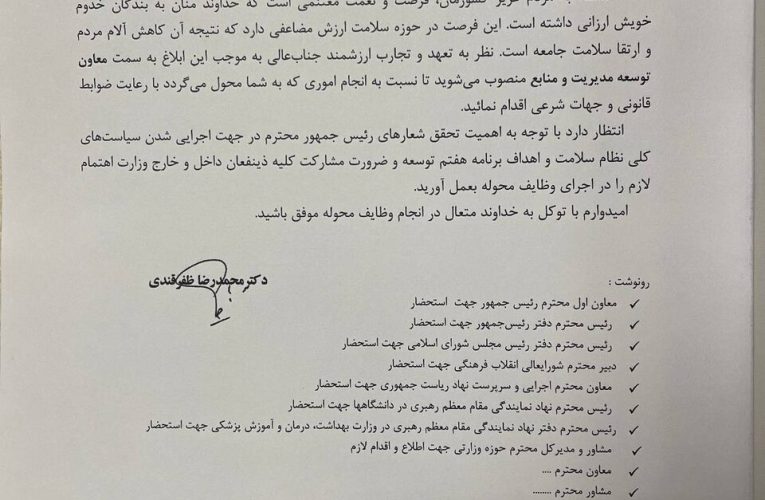 مردم عزیز کشورمان، فرصت و نعمت مغتنمی است که خداوند منان به بندگان خدوم
خویش ارزانی داشته است. این فرصت در حوزه سلامت ارزش مضاعفی دارد که نتیجه آن کاهش آلام مردم
و ارتقا سلامت جامعه است. نظر به تعهد و تجارب ارزشمند جناب‌عالی به موجب این ابلاغ به سمت معاون
توسعه مدیریت و منابع منصوب می‌شوید تا نسبت به انجام اموری که به شما محول می‌گردد با رعایت ضوابط
قانونی و جهات شرعی اقدام نمائید.
انتظار دارد با توجه به اهمیت تحقق شعارهای رئیس جمهور محترم در جهت اجرایی شدن سیاست‌های
کلی نظام سلامت و اهداف برنامه هفتم توسعه و ضرورت مشارکت کلیه ذینفعان داخل و خارج وزارت اهتمام
لازم را در اجرای وظایف محوله بعمل آورید.
امیدوارم با توکل به خداوند متعال در انجام وظایف محوله موفق باشید.
دکتر محمدرضا ظفرقندی
رونوشت :
✓ معاون اول محترم رئیس جمهور جهت استحضار
✓ رئیس محترم دفتر رئیس‌جمهور جهت استحضار
✓ رئیس محترم دفتر رئیس مجلس شورای اسلامی جهت استحضار
✓ دبیر محترم شورایعالی انقلاب فرهنگی جهت استحضار
✓ معاون محترم اجرایی و سرپرست نهاد ریاست جمهوری جهت استحضار
✓ رئیس محترم نهاد نمایندگی مقام معظم رهبری در دانشگاهها جهت استحضار
✓ رئیس محترم دفتر نهاد نمایندگی مقام معظم رهبری در وزارت بهداشت، درمان و آموزش پزشکی جهت استحضار
✓ مشاور و مدیرکل محترم حوزه وزارتی جهت اطلاع و اقدام لازم
✓ معاون محترم ....
✓ مشاور محترم ........